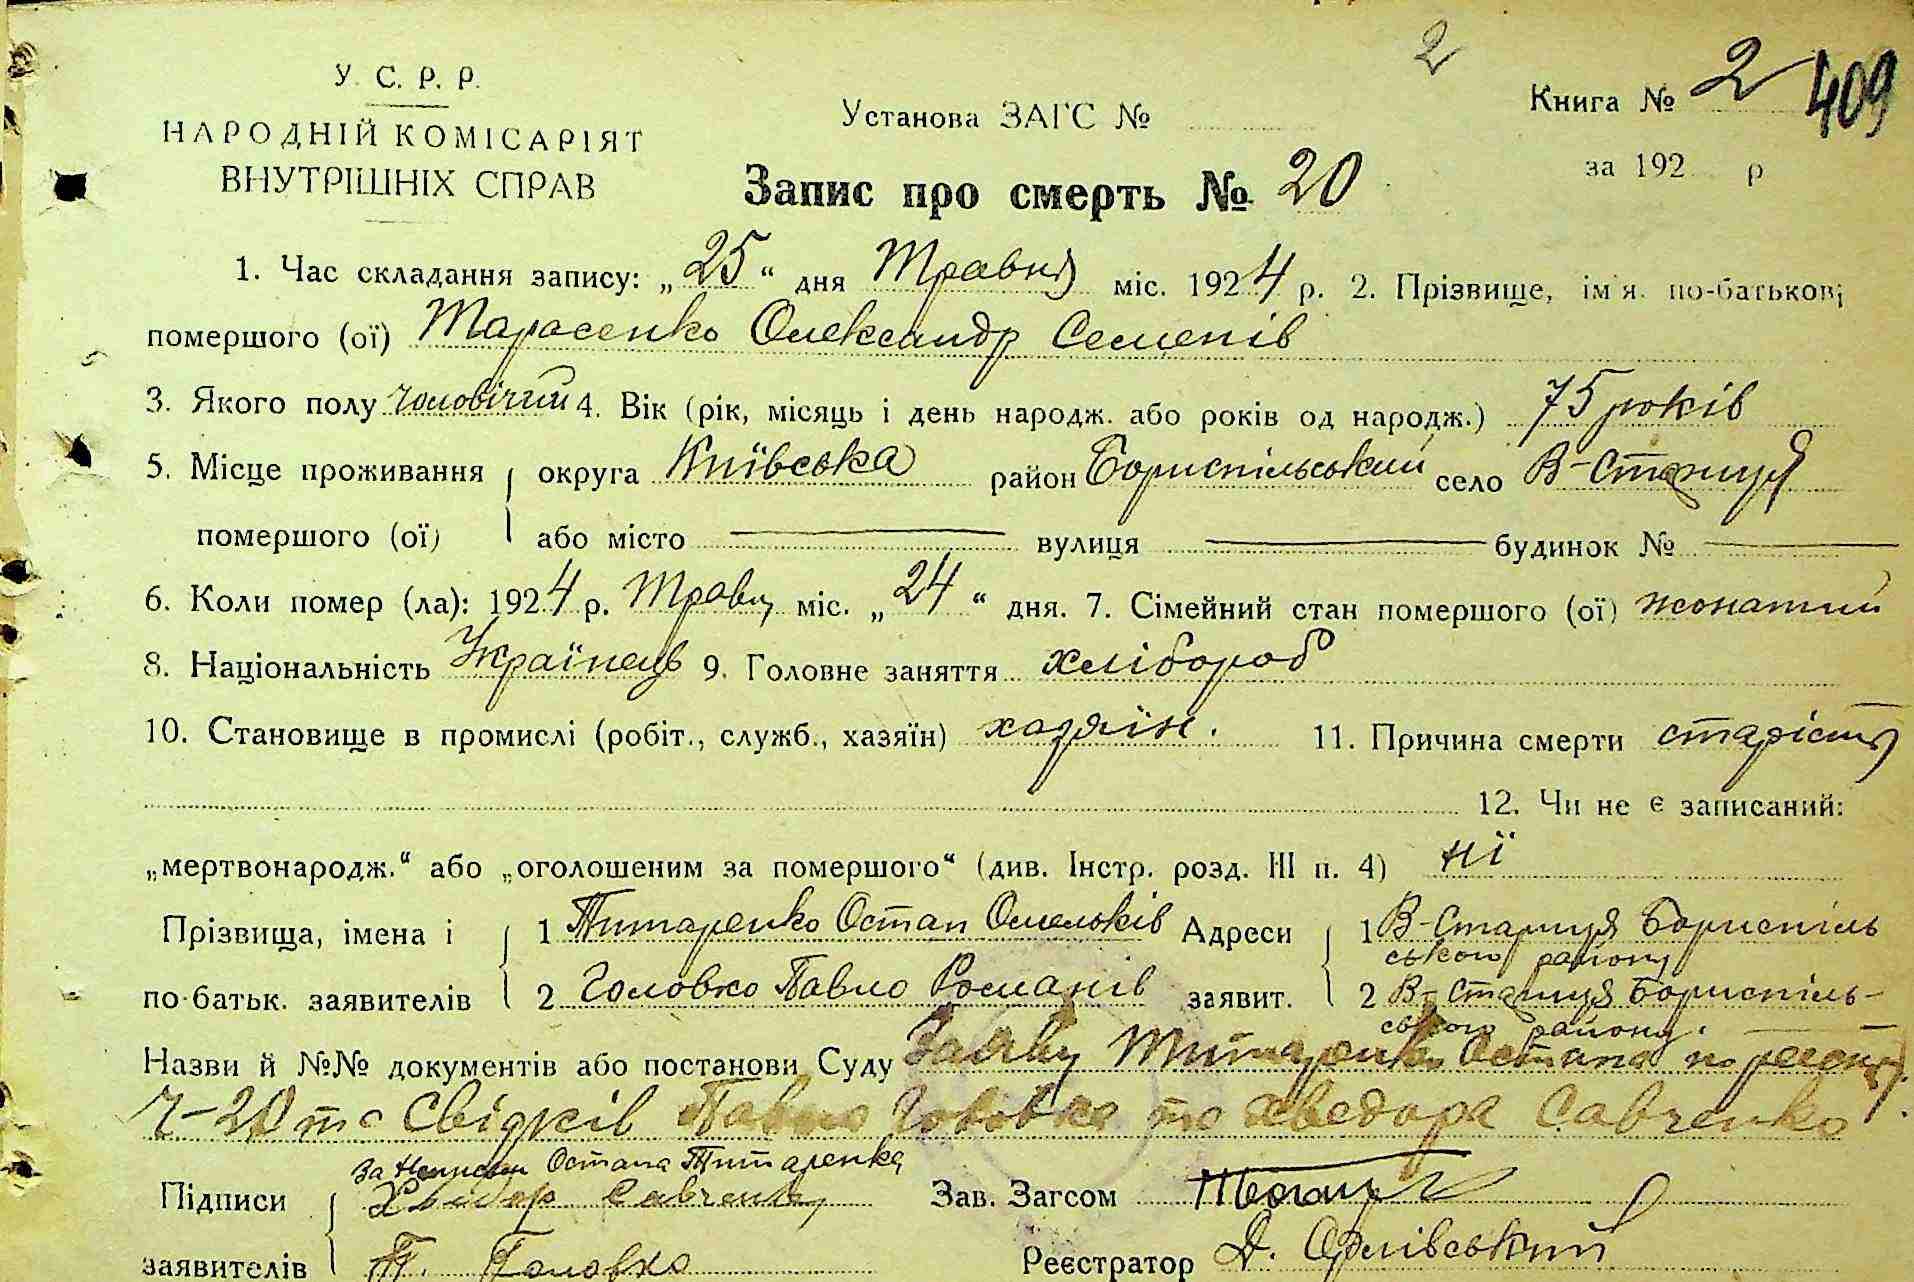 2
У. С. Р. Р.
НАРОДНІЙ КОМІСАРІЯТ
ВНУТРІШНІХ СПРАВ
Установа ЗАГС №
Книга № 2 409
за 192 р
Запис про смерть № 20
1. Час складання запису: „25“ дня Травня міс. 1924 р. 2. Прізвище, імя. по-батькові
помершого (ої) Тарасенко Олександр Семенів
3. Якого полу чоловічий 4. Вік (рік, місяць і день народж. або років од народж.) 75 років
5. Місце проживання округа Київська район Бориспільський село В-Стариця
помершого (ої) або місто вулиця будинок №
6. Коли помер (ла): 1924 р. Травн міс. „24“ дня. 7. Сімейний стан помершого (ої) жонатий
8. Національність Українець 9. Головне заняття хлібороб
10. Становище в промислі (робіт., служб., хазяїн) хазяїн. 11. Причина смерти старість
12. Чи не є записаний:
„мертвонародж.“ або „оголошеним за помершого“ (див. Інстр. розд. III п. 4) ні
Прізвища, імена і 1 Титаренко Остап Омельків Адреси 1 В-Стариця Бориспіль
ського району
по-батьк. заявителів 2 Головко Павло Романів заявит. 2 В-Стариця Бориспіль-
ського району.
Назви й №№ документів або постанови Суду Заяву Титаренка Остапа по реєстр.
Ч-20 та Свідків Павла Головка та Хведора Савченко
За Остапа Титаренка
Підписи Хведор Савченко Зав. Загсом
заявителів П. Головко Реєстратор Д. Орлівський